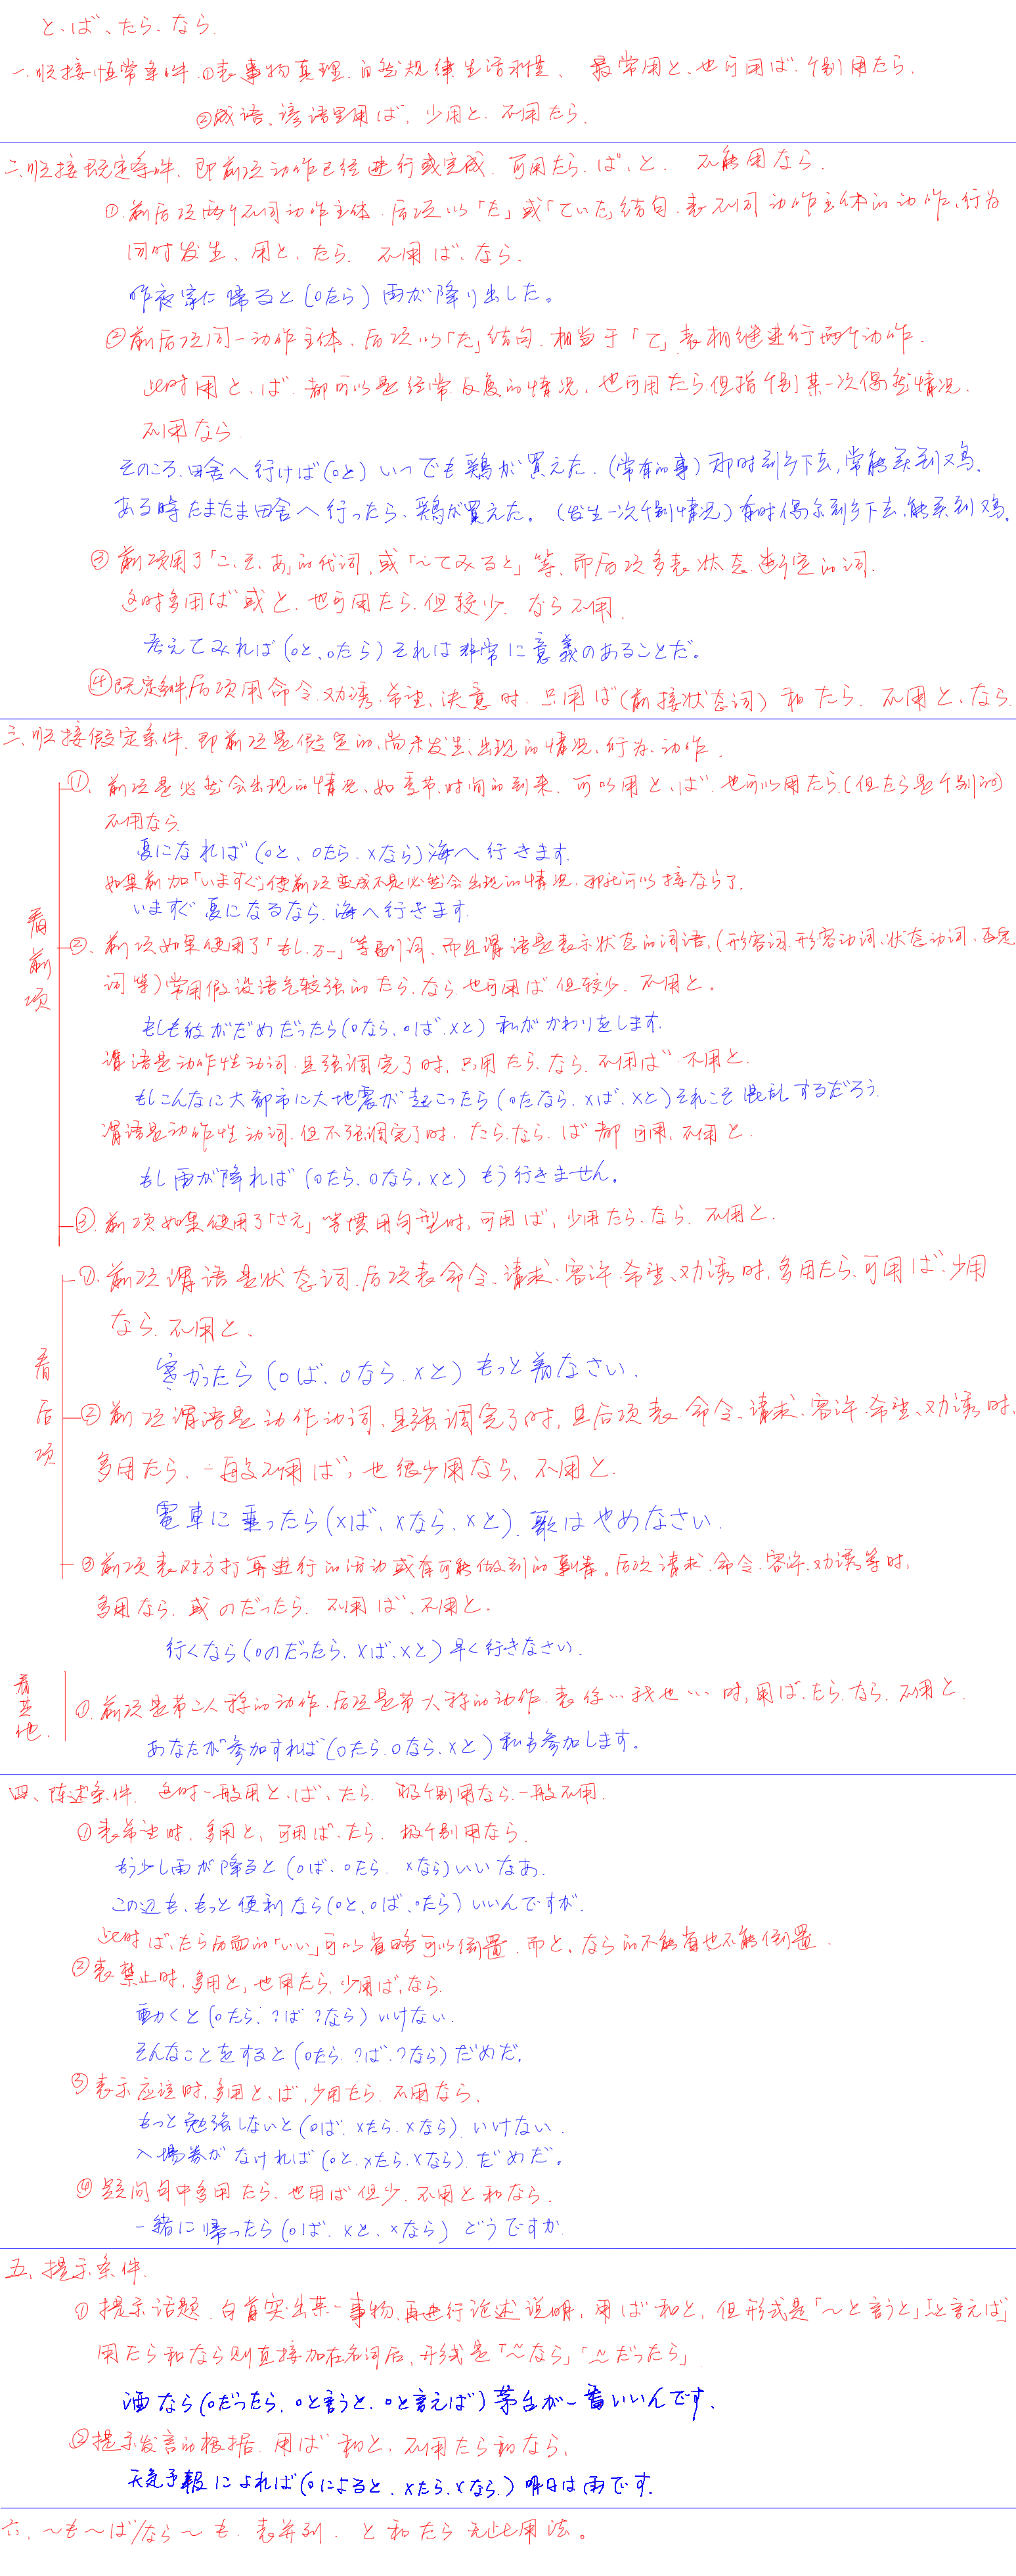 と、ば、たら、なら.
一.顺接恒常条件.①表事物真理.自然规律.生活习惯、最常用と.也可用ば.个别用たら.
②成语、谚语里用ば,少用と.不用たら.
二.顺接既定条件.即前项动作已经进行或完成.可用たら.ば、と 不能用なら.
①.前后项两个不同动作主体.后项以「た」或「ていた」结句.表不同动作主体的动作、行为
同时发生、用と、たら. 不用ば、なら.
昨夜家に帰ると(oたら)雨が降り出した。
②前后项同一动作主体、后项以「た」结句.相当于「て」表相继进行两个动作.
此时用と、ば.都可以是经常反复的情况,也可用たら.但指个别某一次偶然情况.
不用なら.
そのころ.田舎へ行けば(oと)いつでも鶏が買えた.(常有的事)那时到乡下去,常能买到鸡.
ある時たまたま田舎へ行ったら、鶏が買えた。(发生一次个别情况)有时偶尔到乡下去.能买到鸡.
③前项用了「こ、そ、あ」的代词,或「～てみると」等,而后项多表状态断定的词.
这时多用ば或と.也可用たら.但较少.なら不用.
考えてみれば(oと、oたら)それは非常に意義のあることだ。
④既定条件后项用命令.劝诱.希望、决意时.只用ば(前接状态词)和たら. 不用と、なら.
三.顺接假定条件.即前项是假定的,尚未发生、出现的情况、行为、动作.
看前项
①、前项是必然会出现的情况、如季节.时间的到来.可以用と、ば.也可以用たら.(但たら是个别的)
不用なら.
夏になれば(oと、oたら.xなら)海へ行きます.
如果前加「いますぐ」使前项变成不是必然会出现的情况.那就可以接なら了.
いますぐ夏になるなら.海へ行きます.
②、前项如果使用了「もし.万一」等副词、而且谓语是表示状态的词语,(形容词.形容动词、状态动词、否定
词等)常用假设语气较强的たら、なら.也可用ば.但较少.不用と。
もしも彼がだめだったら(oなら.oば.xと)私がかわりをします.
谓语是动作性动词.且强调完了时.只用たら、なら.不用ば.不用と.
もしこんなに大都市に大地震が起こったら(oたなら.xば、xと)それこそ混乱するだろう.
谓语是动作性动词.但不强调完了时.たら、なら、ば都可用,不用と.
もし雨が降れば(oたら.oなら.xと)もう行きません。
③.前项如果使用了「さえ」等惯用句型时,可用ば,少用たら、なら.不用と.
看后项
①.前项谓语是状态词.后项表命令、请求、容许.希望、劝诱时,多用たら.可用ば.少用
なら.不用と、
寒かったら(oば、oなら.xと)もっと着なさい.
②前项谓语是动作动词.且强调完了时,且后项表命令、请求、容许.希望、劝诱时.
多用たら.一般不用ば,也很少用なら、不用と.
電車に乗ったら(xば、xなら、xと).歌はやめなさい.
③前项表对方打算进行的活动或有可能做到的事情。后项请求.命令.容许.劝诱等时,
多用なら.或のだったら.不用ば、不用と.
行くなら(oのだったら.xば.xと)早く行きなさい.
看其他.
①.前项是第二人称的动作.后项是第一人称的动作.表你…我也…时,用ば.たら.なら.不用と.
あなたが参加すれば(oたら.oなら.xと)私も参加します。
四、陈述条件. 这时一般用と、ば、たら. 极个别用なら.一般不用.
①表希望时.多用と,可用ば、たら. 极个别用なら.
もう少し雨が降ると(oば、oたら.xなら)いいなあ.
この辺も、もっと便利なら(oと、oば、oたら)いいんですが.
此时ば、たら后面的「いい」可以省略可以倒置.而と、なら的不能省也不能倒置.
②表禁止时,多用と,也用たら.少用ば,なら.
動くと(oたら.?ば?なら)いけない.
そんなことをすると(oたら.?ば.?なら)だめだ.
③表示应该时,多用と、ば,少用たら.不用なら.
もっと勉強しないと(oば.xたら.xなら).いけない.
入場券がなければ(oと.xたら.xなら).だめだ。
④疑问句中多用たら、也用ば但少.不用と和なら.
一緒に帰ったら(oば.xと、xなら)どうですか.
五、提示条件.
①提示话题.白首突出某一事物.再进行论述说明,用ば和と,但形式是「～と言うと」「と言えば」
用たら和なら则直接加在名词后,形式是「～なら」「～だったら」
酒なら(oだったら、oと言うと.oと言えば)茅台が一番いいんです.
②提示发言的根据.用ば和と.不用たら和なら.
天気予報によれば(oによると.xたら.xなら.)明日は雨です.
六、～も～ば/なら～も.表并列. と和たら无此用法。